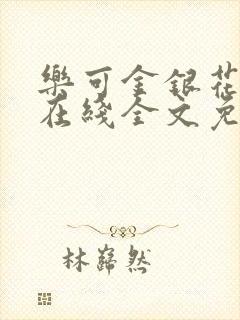 樂可金銀花
在綫全文免
林巋然